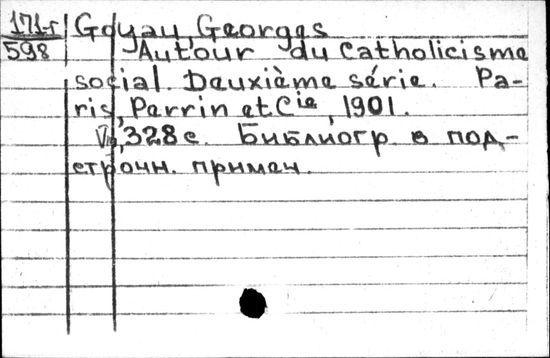 171-г Goyau, Georges
598 Autour du Catholicisme
social. Deuxième série. Pa-
ris, Perrin et Cie, 1901.
328 с. Библиогр. в под-
строчн. примеч.